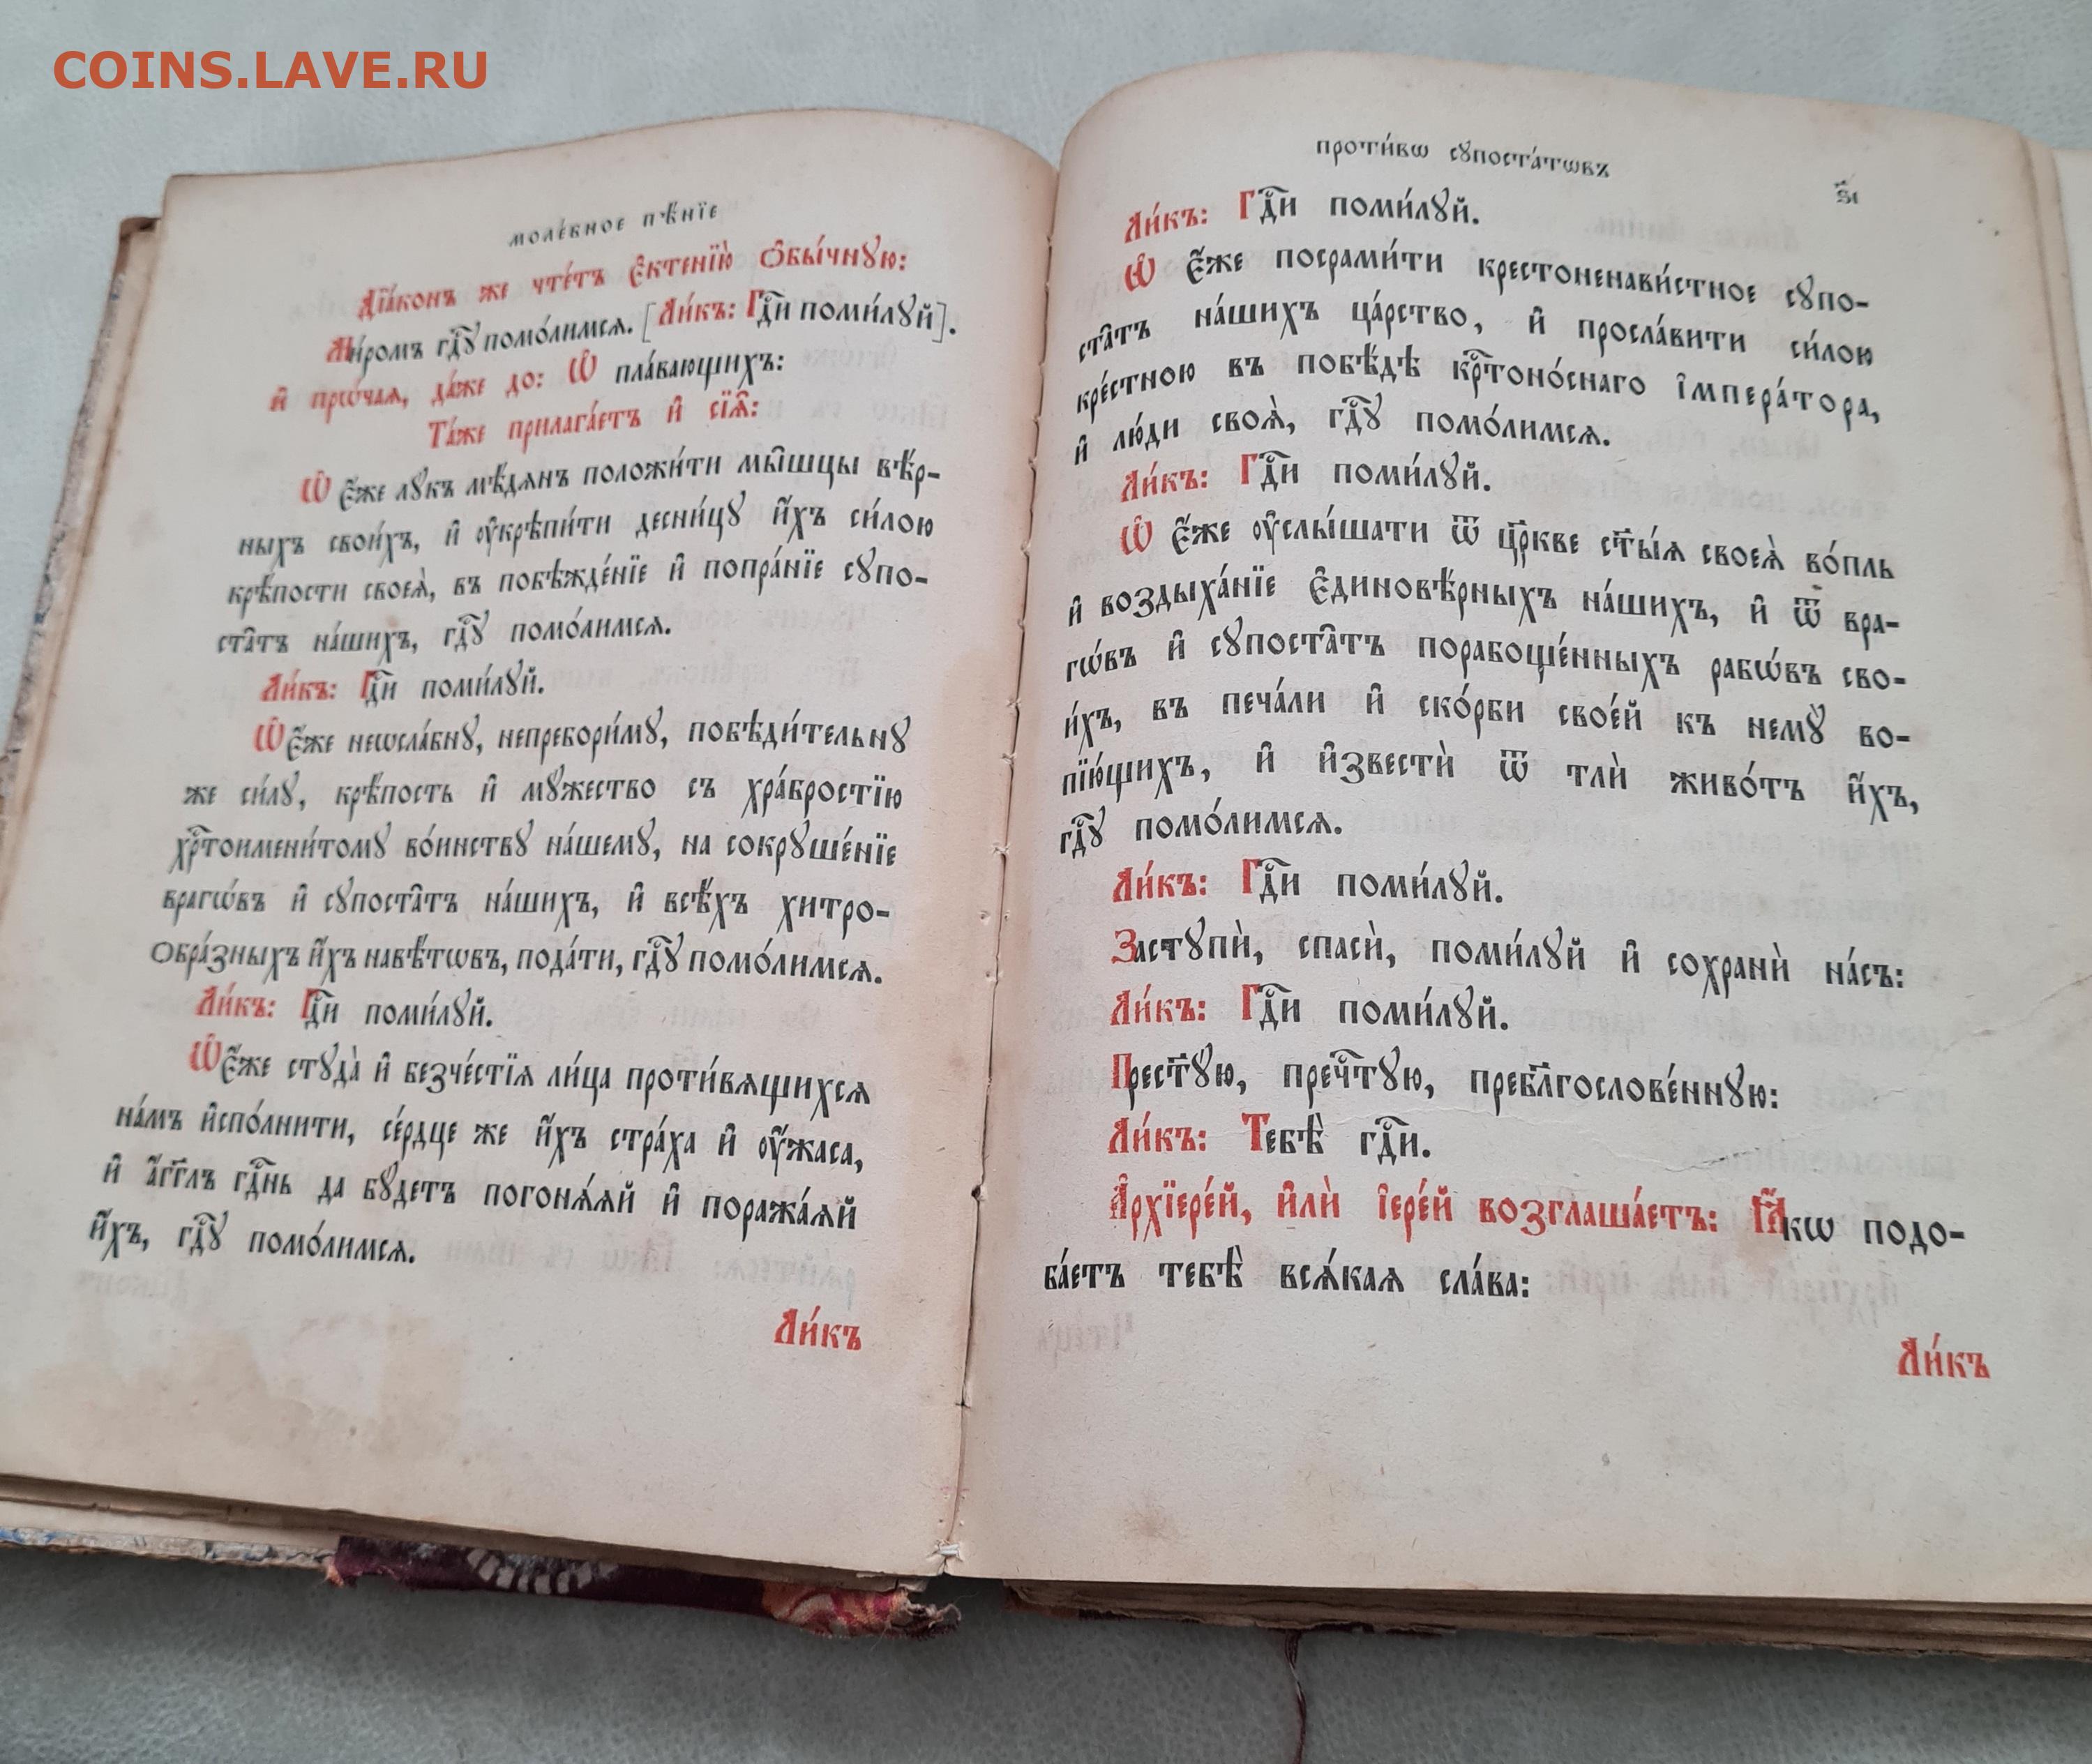 COINS.LAVE.RU
моле́бное пѣ́нїе
Дїа́конъ же чте́тъ є҆ктенїю̀ ѻ҆бы́чнꙋю:
Ми́ромъ гдⷭ҇ꙋ помо́лимсѧ. [Ли́къ: Гдⷭ҇и поми́лꙋй].
и҆ прѡ́чаѧ, да́же до: Ѡ҆ пла́вающихъ:
Та́же прилага́етъ и҆ сїѧ̑:
Ѡ҆ є҆́же лꙋ́къ мѣ́дѧнъ положи́ти мы̑шцы вѣ́р-
ныхъ свои́хъ, и҆ ᲂу҆крѣпи́ти десни́цꙋ и҆́хъ си́лою
крѣ́пости своеѧ̀, въ побѣжде́нїе и҆ попра́нїе сꙋпо-
ста̑тъ на́шихъ, гдⷭ҇ꙋ помо́лимсѧ.
Ли́къ: Гдⷭ҇и поми́лꙋй.
Ѡ҆ є҆́же неѡсла́бнꙋ, непребори́мꙋ, побѣди́тельнꙋ
же си́лꙋ, крѣ́пость и҆ мꙋ́жество съ хра́бростїю
хрⷭ҇тоимени́томꙋ во́инствꙋ на́шемꙋ, на сокрꙋше́нїе
врагѡ́въ и҆ сꙋпоста̑тъ на́шихъ, и҆ всѣ́хъ хитро-
ѻбра́зныхъ и҆́хъ навѣ́тѡвъ, пода́ти, гдⷭ҇ꙋ помо́лимсѧ.
Ли́къ: Гдⷭ҇и поми́лꙋй.
Ѡ҆ є҆́же стꙋда̀ и҆ безче́стїѧ ли́ца проти́вѧщихсѧ
на́мъ и҆спо́лнити, се́рдце же и҆́хъ стра́ха и҆ ᲂу҆́жаса,
и҆ а҆́гг҃лъ гдⷭ҇нь да бꙋ́детъ погонѧ́ѧй и҆ поража́ѧй
и҆́хъ, гдⷭ҇ꙋ помо́лимсѧ.
Ли́къ
проти́вѡ сꙋпоста́тѡвъ
ѕ҃і
Ли́къ: Гдⷭ҇и поми́лꙋй.
Ѡ҆ є҆́же посрами́ти крестоненави́стное сꙋпо-
ста̑тъ на́шихъ ца́рство, и҆ просла́вити си́лою
кре́стною въ побѣ́дѣ крⷭ҇тоно́снаго і҆мпера́тора,
и҆ лю́ди своѧ̀, гдⷭ҇ꙋ помо́лимсѧ.
Ли́къ: Гдⷭ҇и поми́лꙋй.
Ѡ҆ є҆́же ᲂу҆слы́шати ѿ цр҃кве ст҃ы́ѧ своеѧ̀ во́пль
и҆ воздыха́нїе є҆диновѣ́рныхъ на́шихъ, и҆ ѿ вра-
гѡ́въ и҆ сꙋпоста̑тъ порабоще́нныхъ рабѡ́въ сво-
и́хъ, въ печа́ли и҆ ско́рби свое́й къ немꙋ̀ во-
пїю́щихъ, и҆ и҆звестѝ ѿ тлѝ живо́тъ и҆́хъ,
гдⷭ҇ꙋ помо́лимсѧ.
Ли́къ: Гдⷭ҇и поми́лꙋй.
Застꙋпѝ, спасѝ, поми́лꙋй и҆ сохранѝ на́съ:
Ли́къ: Гдⷭ҇и поми́лꙋй.
Прест҃ꙋ́ю, пречⷭ҇тꙋю, пребл҃гослове́ннꙋю:
Ли́къ: Тебѣ̀ гдⷭ҇и.
А҆рхїере́й, и҆лѝ і҆ере́й возглаша́етъ: Ꙗ҆́кѡ подо-
ба́етъ тебѣ̀ всѧ́каѧ сла́ва:
Ли́къ